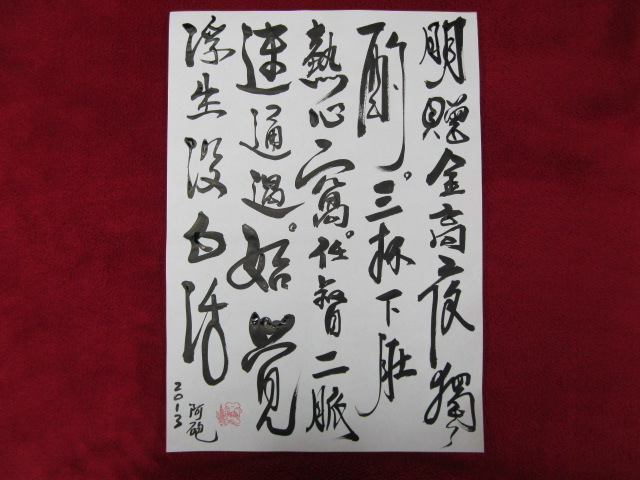 明贈金高夜獨
酌。三杯下肚
熱心窩。任督二脈
連通過。始覺
浮生沒白活
2013
阿砲